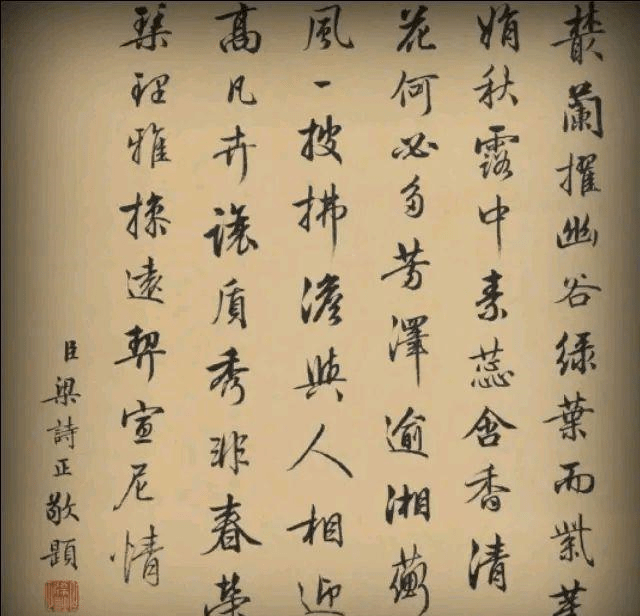 蘭擢幽谷綠葉而紫莖
娟秋露中素蕊含香清
花何必多芳澤逾湘蘅
風一披拂澹與人相迎
高凡卉讓質秀非春榮
琴理雅操遠契宣尼情
臣梁詩正敬題